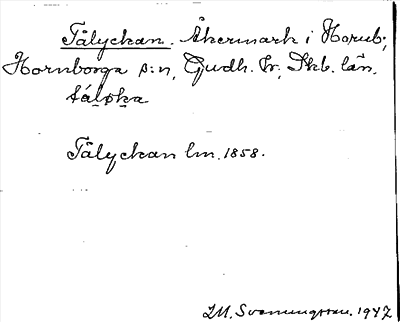 Tålyckan. Åkermark i Hornb.,
Hornborga s:n, Gudh. hr, Skb. län.
tálφka
Tålyckan lm. 1858.
I.M. Svenningsson. 1947